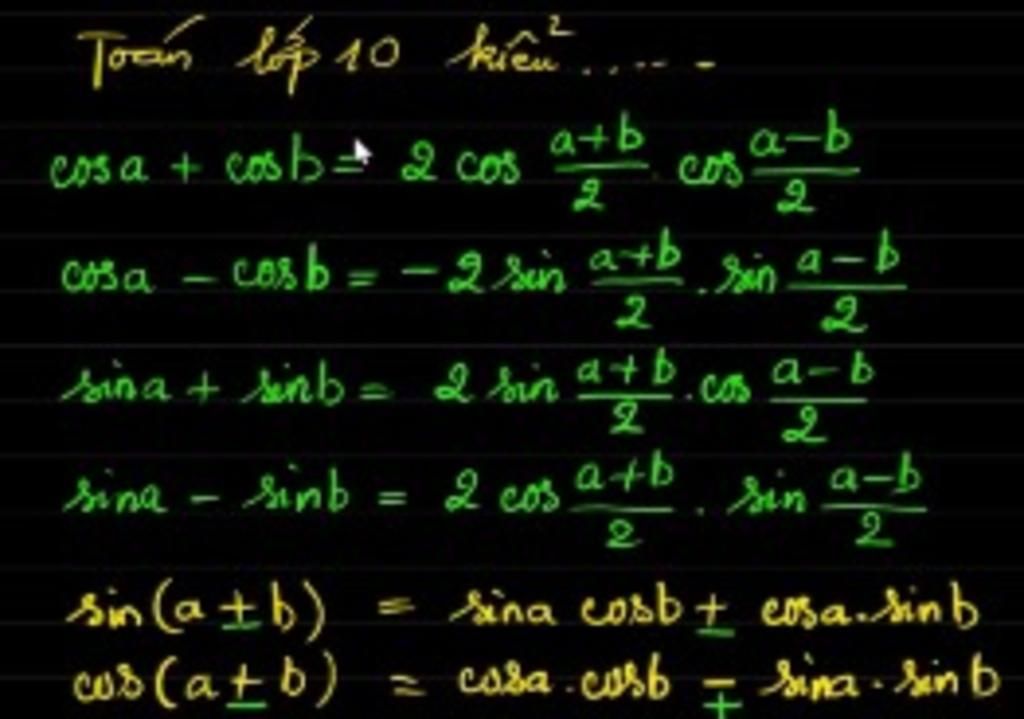 Toán lớp 10 kiểu².....
cosa + cosb = 2 cos \frac{a+b}{2} . cos \frac{a-b}{2}
cosa - cosb = -2 sin \frac{a+b}{2} . sin \frac{a-b}{2}
sina + sinb = 2 sin \frac{a+b}{2} . cos \frac{a-b}{2}
sina - sinb = 2 cos \frac{a+b}{2} . sin \frac{a-b}{2}
sin(a ± b) = sina cosb ± cosa.sinb
cos(a ± b) = cosa.cosb ∓ sina.sinb